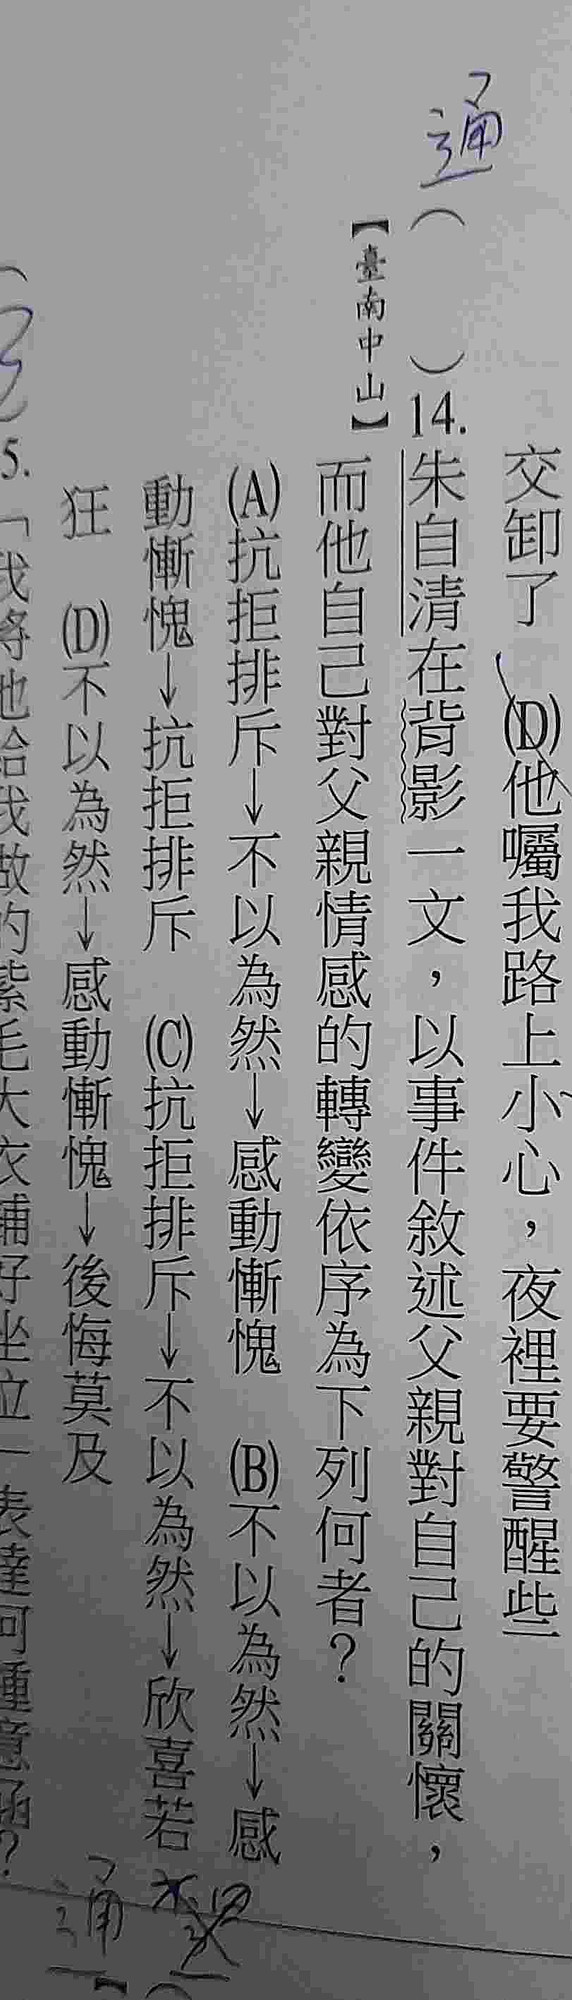 交卸了　(D)他囑我路上小心，夜裡要警醒些
通
(　)14.朱自清在背影一文，以事件敘述父親對自己的關懷，
而他自己對父親情感的轉變依序為下列何者？
【臺南中山】
(A)抗拒排斥→不以為然→感動慚愧　(B)不以為然→感
動慚愧→抗拒排斥　(C)抗拒排斥→不以為然→欣喜若
狂　(D)不以為然→感動慚愧→後悔莫及
通
5.「我將他給我做的紫毛大衣鋪好坐位」表達何種意涵？